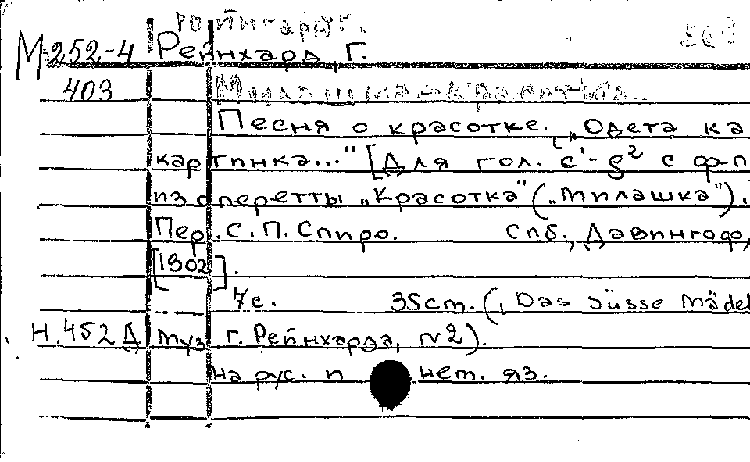 Рейнгардт.
М-252-4 Рейнхард, Г.
403
Песня о красотке. („Одета ка
картинка..." [Для гол. c¹-g² с ф-п
из оперетты „Красотка" („Милашка").
Пер. С. П. Спиро. Спб., Давингоф,
[1902].
7с. 35см. („Das süsse Mädel
Н.452Д муз. Г. Рейнхарда, №2).
на рус. и нем. яз.